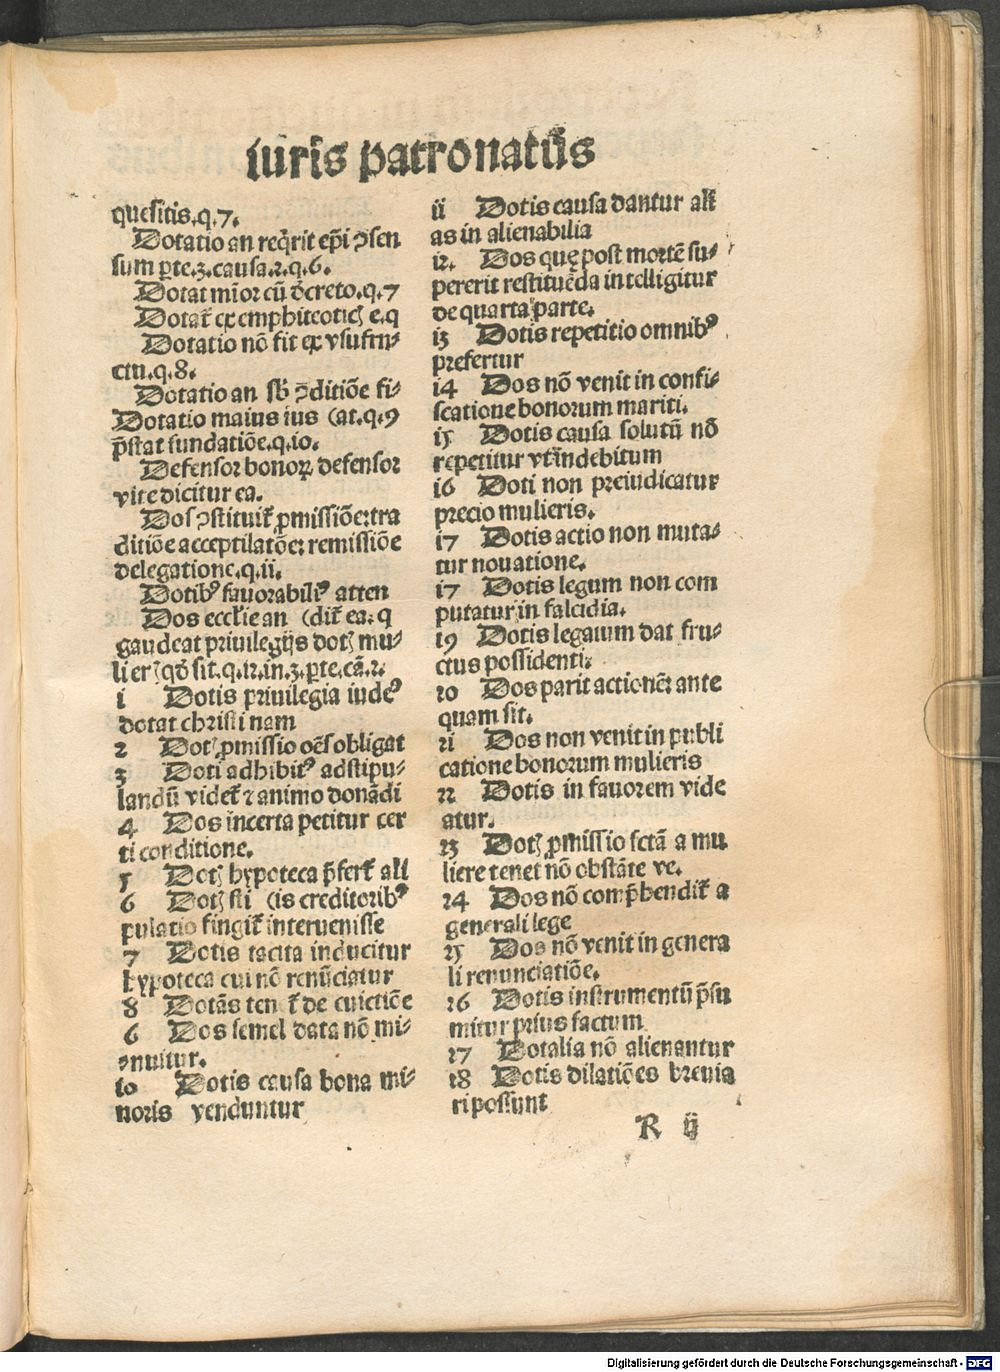 iuris patronatūs
quesitis.q.7.
Dotatio an reqͥrit ep̄i ↄsen
sum ꝑte.3.causa.2.q.6.
Dotat mīor cū d̄creto.q.7
Dotat᷑ ex emphiteotic̄ e.q
Dotatio nō fit ex vsufru⸗
ctu.q.8.
Dotatio an sb̄ ↄ̄ditiōe fi⸗
Dotatio maius ius (at.q.9
p̄stat fundatiōe.q.io.
Defensor bonoꝝ defensor
vite dicitur ea.
Dos ↄstituit᷑ ꝓmissiōe:tra
ditiōe acceptilatōe: remissiōe
delegatione.q.ii.
Dotibꝰ fauorabiliꝰ atten
Dos eccl'ie an (dit᷑ ea: q
gaudeat priuilegijs dotꝭ mu⸗
lierꝭ qd̄ sit.q.12.in.3.ꝑte.cā.2.
i Dotis priuilegia iudeꝰ
dotat christi nam
2 Dotꝭ ꝓmissio oēs obligat
3 Doti adhibitꝰ adstipu⸗
landū videt᷑ ⁊ animo donādi
4 Dos incerta petitur cer
ti conditione.
5 Dotꝭ hypoteca p̄fert᷑ all
6 Dotꝭ sti (is creditoribꝰ
pulatio fingit᷑ interuenisse
7 Dotis tacita inducitur
hypoteca cui nō renūciatur
8 Dotās tenet᷑ de euictiōe
6 Dos semel data nō mi⸗
nuitur.
io Dotis causa bona mi⸗
noris venduntur
ii Dotis causa dantur ali
as in alienabilia
12. Dos quę post mortē su⸗
pererit restituēda intelligitur
de quarta parte.
i3 Dotis repetitio omnibꝰ
prefertur
i4 Dos nō venit in confi⸗
scatione bonorum mariti.
i5 Dotis causa solutū nō
repetitur vt īndebitum
i6 Doti non preiudicatur
precio mulieris.
i7 Dotis actio non muta⸗
tur nouatione.
i7 Dotis legum non com
putatur in falcidia.
i9 Dotis legatum dat fru⸗
ctus possidenti.
20 Dos parit actionē: ante
quam sit.
2i Dos non venit in publi
catione bonorum mulieris
22 Dotis in fauorem vide
atur.
23 Dotꝭ ꝓmissio fctā a mu
liere tenet nō obstāte ve.
24 Dos nō comp̄hendit᷑ a
generali lege
25 Dos nō venit in genera
li renunciatiōe.
26 Dotis instrumentū p̄su
mitur prius factum
27 Dotalia nō alienantur
28 Dotis dilatiōes breuia
ri possunt
R ij
Digitalisierung gefördert durch die Deutsche Forschungsgemeinschaft - DFG